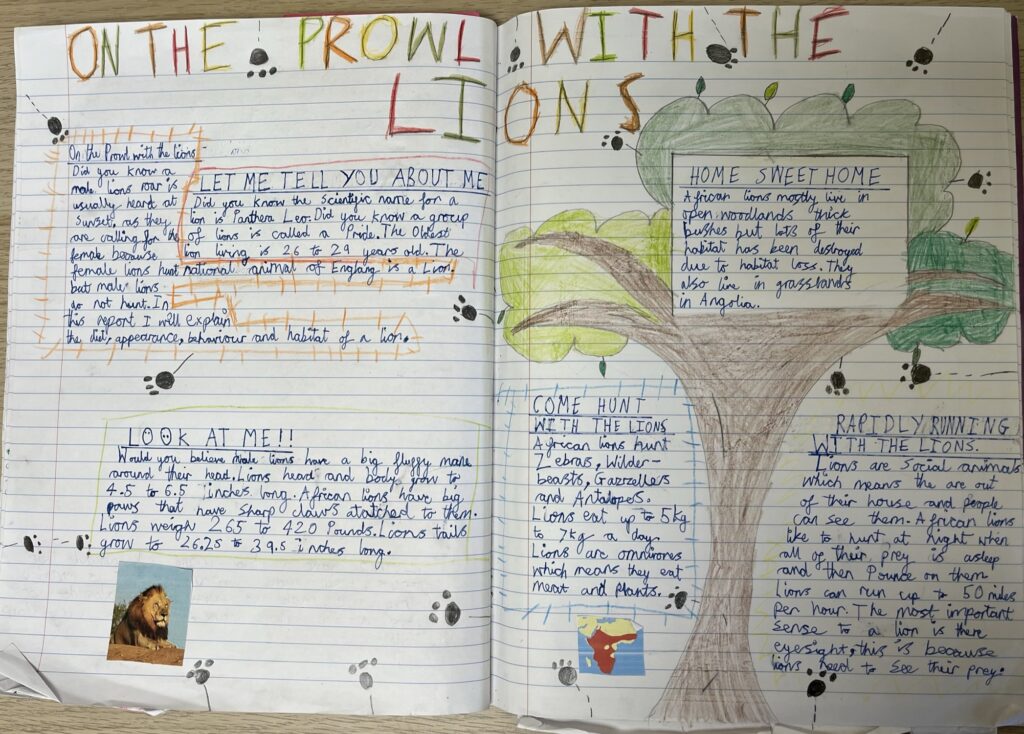 ON THE PROWL WITH THE
LIONS
On the Prowl with the lions -
Did you know a
male lions roar is
usually heard at
sunset, as they
are calling for the
female because
female lions hunt
but male lions
do not hunt. In
this report I will explain
the diet, appearance, behaviour and habitat of a lion.
LET ME TELL YOU ABOUT ME
Did you know the scientific name for a
lion is Panthera Leo. Did you know a group
of lions is called a Pride. The Oldest
lion living is 26 to 29 years old. The
national animal of England is a Lion.
LOOK AT ME!!
Would you believe Male lions have a big fluffy mane
around their head. Lions head and body grow to
4.5 to 6.5 inches long. African lions have big
paws that have sharp claws atatched to them.
Lions weigh 265 to 420 Pounds. Lions tails
grow to 26.25 to 39.5 inches long.
HOME SWEET HOME
African lions mostly live in
open woodlands thick
bushes but lots of their
habitat has been destroyed
due to habitat loss. They
also live in grasslands
in Angolia.
COME HUNT
WITH THE LIONS
African lions hunt
Zebras, Wilder-
beasts, Gazzellers
and Antalopes.
Lions eat up to 5kg
to 7kg a day.
Lions are omnivores
which means they eat
meat and plants.
RAPIDLY RUNNING
WITH THE LIONS.
Lions are social animals
which means the are out
of their house and people
can see them. African lions
like to hunt at night when
all of their prey is asleep
and then Pounce on them
Lions can run up to 50 miles
per hour. The most important
sense to a lion is there
eyesight, this is because
lions need to see their prey.